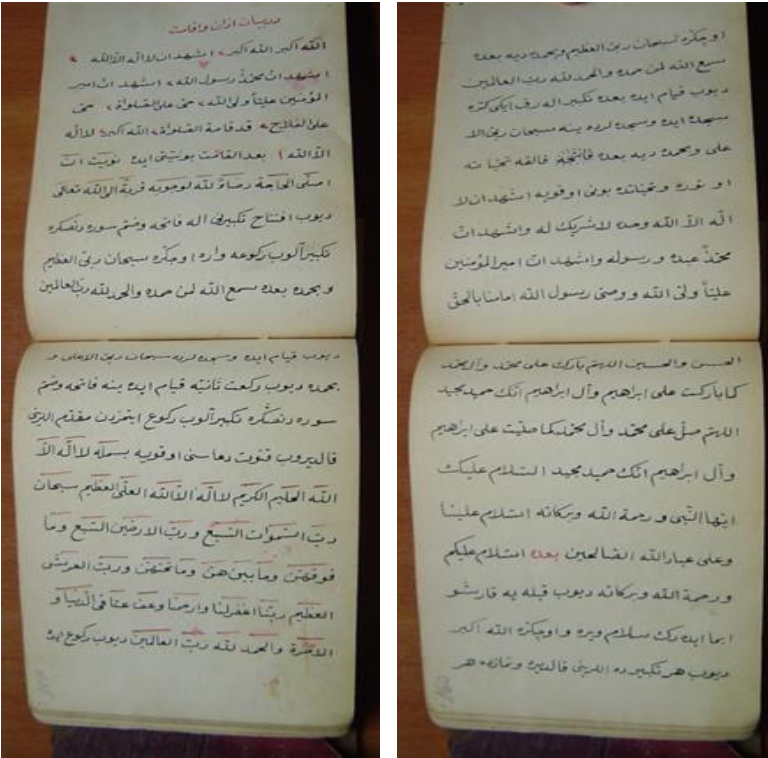 در بيان اذان و اقامت
الله اكبر الله اكبر، اشهد ان لا اله الا الله
اشهد ان محمدً رسول الله، اشهد ان امير
المؤمنين عليّاً ولى الله، حى على الصلواة، حى
على الفلاح، قد قامة الصلواة، الله اكبر، لا اله
الاّ الله، بعد القامت بو نيتى ايده نويت ان
اصلّى الحاجة رضاءً لله لوجوبه قربةً الى الله تعالى
ديوب افتتاح تكبيرنى اله فاتحه وضم سوره دنصكره
تكبير آلوب ركوعه واره اوچكره سبحان ربى العظيم
و بحمده بعده سمع الله لمن حمده والحمد لله ربّ العالمين
ديوب قيام ايده وسجده لرده سبحان ربى الاعلى و
بحمده ديوب ركعت ثانيه قيام ايده ينه فاتحه وضم
سوره دنصكره تكبير آلوب ركوع ايتمزدن مقدم اللرين
قالديروب قنوت دعاسنى اوقويه بسمله لا اله الاّ
الله الحليم الكريم لا اله الا الله العلىّ العظيم سبحان
ربّ السّموات السّبع وربّ الارضين السّبع وما
فوقهنّ وما بين هنّ وما تحتهنّ وربّ العرش
العظيم ربّنا اغفرلنا وارحمنا وعف عنّا فى الدنيا و
الاخرة والحمد لله ربّ العالمين ديوب ركوع ايده
اوچكره سبحان ربى العظيم وبحمده ديه بعده
سمع الله لمن حمده والحمد لله ربّ العالمين
ديوب قيام ايده بعده تكبير اله رق ايكى كره
سجده ايده وسجده لرده ينه سبحان ربى الا
على وبحمده ديه بعده
او توره و تحياتده بونى اوقويه اشهد ان لا
اله الاّ الله وحده لا شريك له واشهد انّ
محمدً عبده ورسوله واشهد انّ امير المؤمنين
عليّاً ولى الله ووصى رسول الله امامنا بالحق
الحسن والحسين اللهم بارك على محمد وآل محمد
كما باركت على ابراهيم وآل ابراهيم انّك حميد مجيد
اللهم صلّ على محمد وآل محمد كما صليت على ابراهيم
وآل ابراهيم انّك حميد مجيد السّلام عليك
ايّها النّبى ورحمة الله وبركاته السّلام علينا
وعلى عباد الله الصّالحين بعده السّلام عليكم
ورحمة الله وبركاته ديوب قبله يه قارشو
ايما ايده رك سلام ويره و اوچكره الله اكبر
ديوب هر تكبيرده اللرينى قالديره ونمازده هر